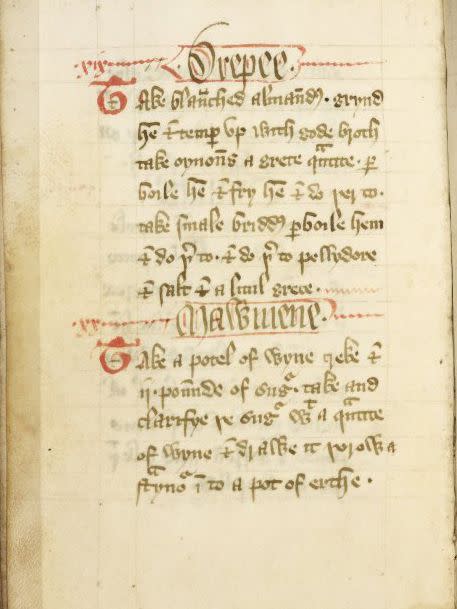 xix Drepee.
Take blaūched almand. grynd
hē & temꝑ vp with gode broth
take oynons a grete qᵃntite. ꝑ
boile hē & fry hē & do þer to.
take smale bridd ꝑboile hem
& do þ to. & do þ to pellydore
& salt & a litul grece.
xx Mawmene.
Take a potel of wyne greke &
ij. pounde of sug. take and
clarifye þe sug wᵗ a qᵃntite
of wyne & drawe it þorow a
stᵃynoʳ ī to a pot of erthe.